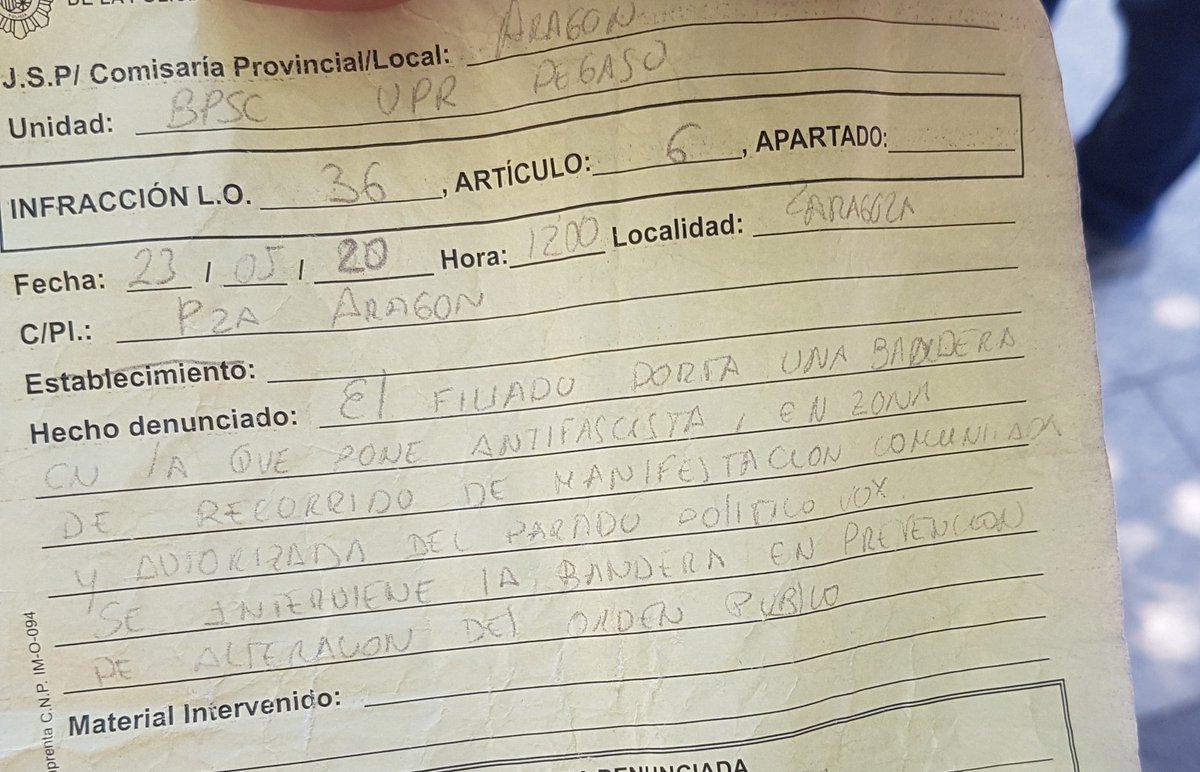 DE LA POLICÍA
J.S.P/ Comisaría Provincial/Local: ARAGON
Unidad: BPSC UPR PEGASO
INFRACCIÓN L.O. 36, ARTÍCULO: 6, APARTADO:
Fecha: 23 / 05 / 20 Hora: 1200 Localidad: ZARAGOZA
C/Pl.: PZA ARAGON
Establecimiento:
Hecho denunciado: El FILIADO PORTA UNA BANDERA
EN lA QUE PONE ANTIFASCISTA, EN ZONA
DE RECORRIDO DE MANIFESTACION COMUNICADA
Y AUTORIZADA DEL PARTIDO POLITICO VOX.
SE INTERVIENE lA BANDERA EN PREVENCION
DE ALTERACION DEl ORDEN PUBlICO
Material Intervenido:
DENUNCIADA
prenta C.N.P. IM-O-094